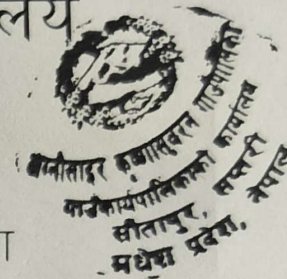 लय
अग्नीसाइर कृष्णासवरन गाउँपालिका
गाउँकार्यपालिकाको कार्यालय
सीतापुर, सप्तरी
मधेश प्रदेश, नेपाल